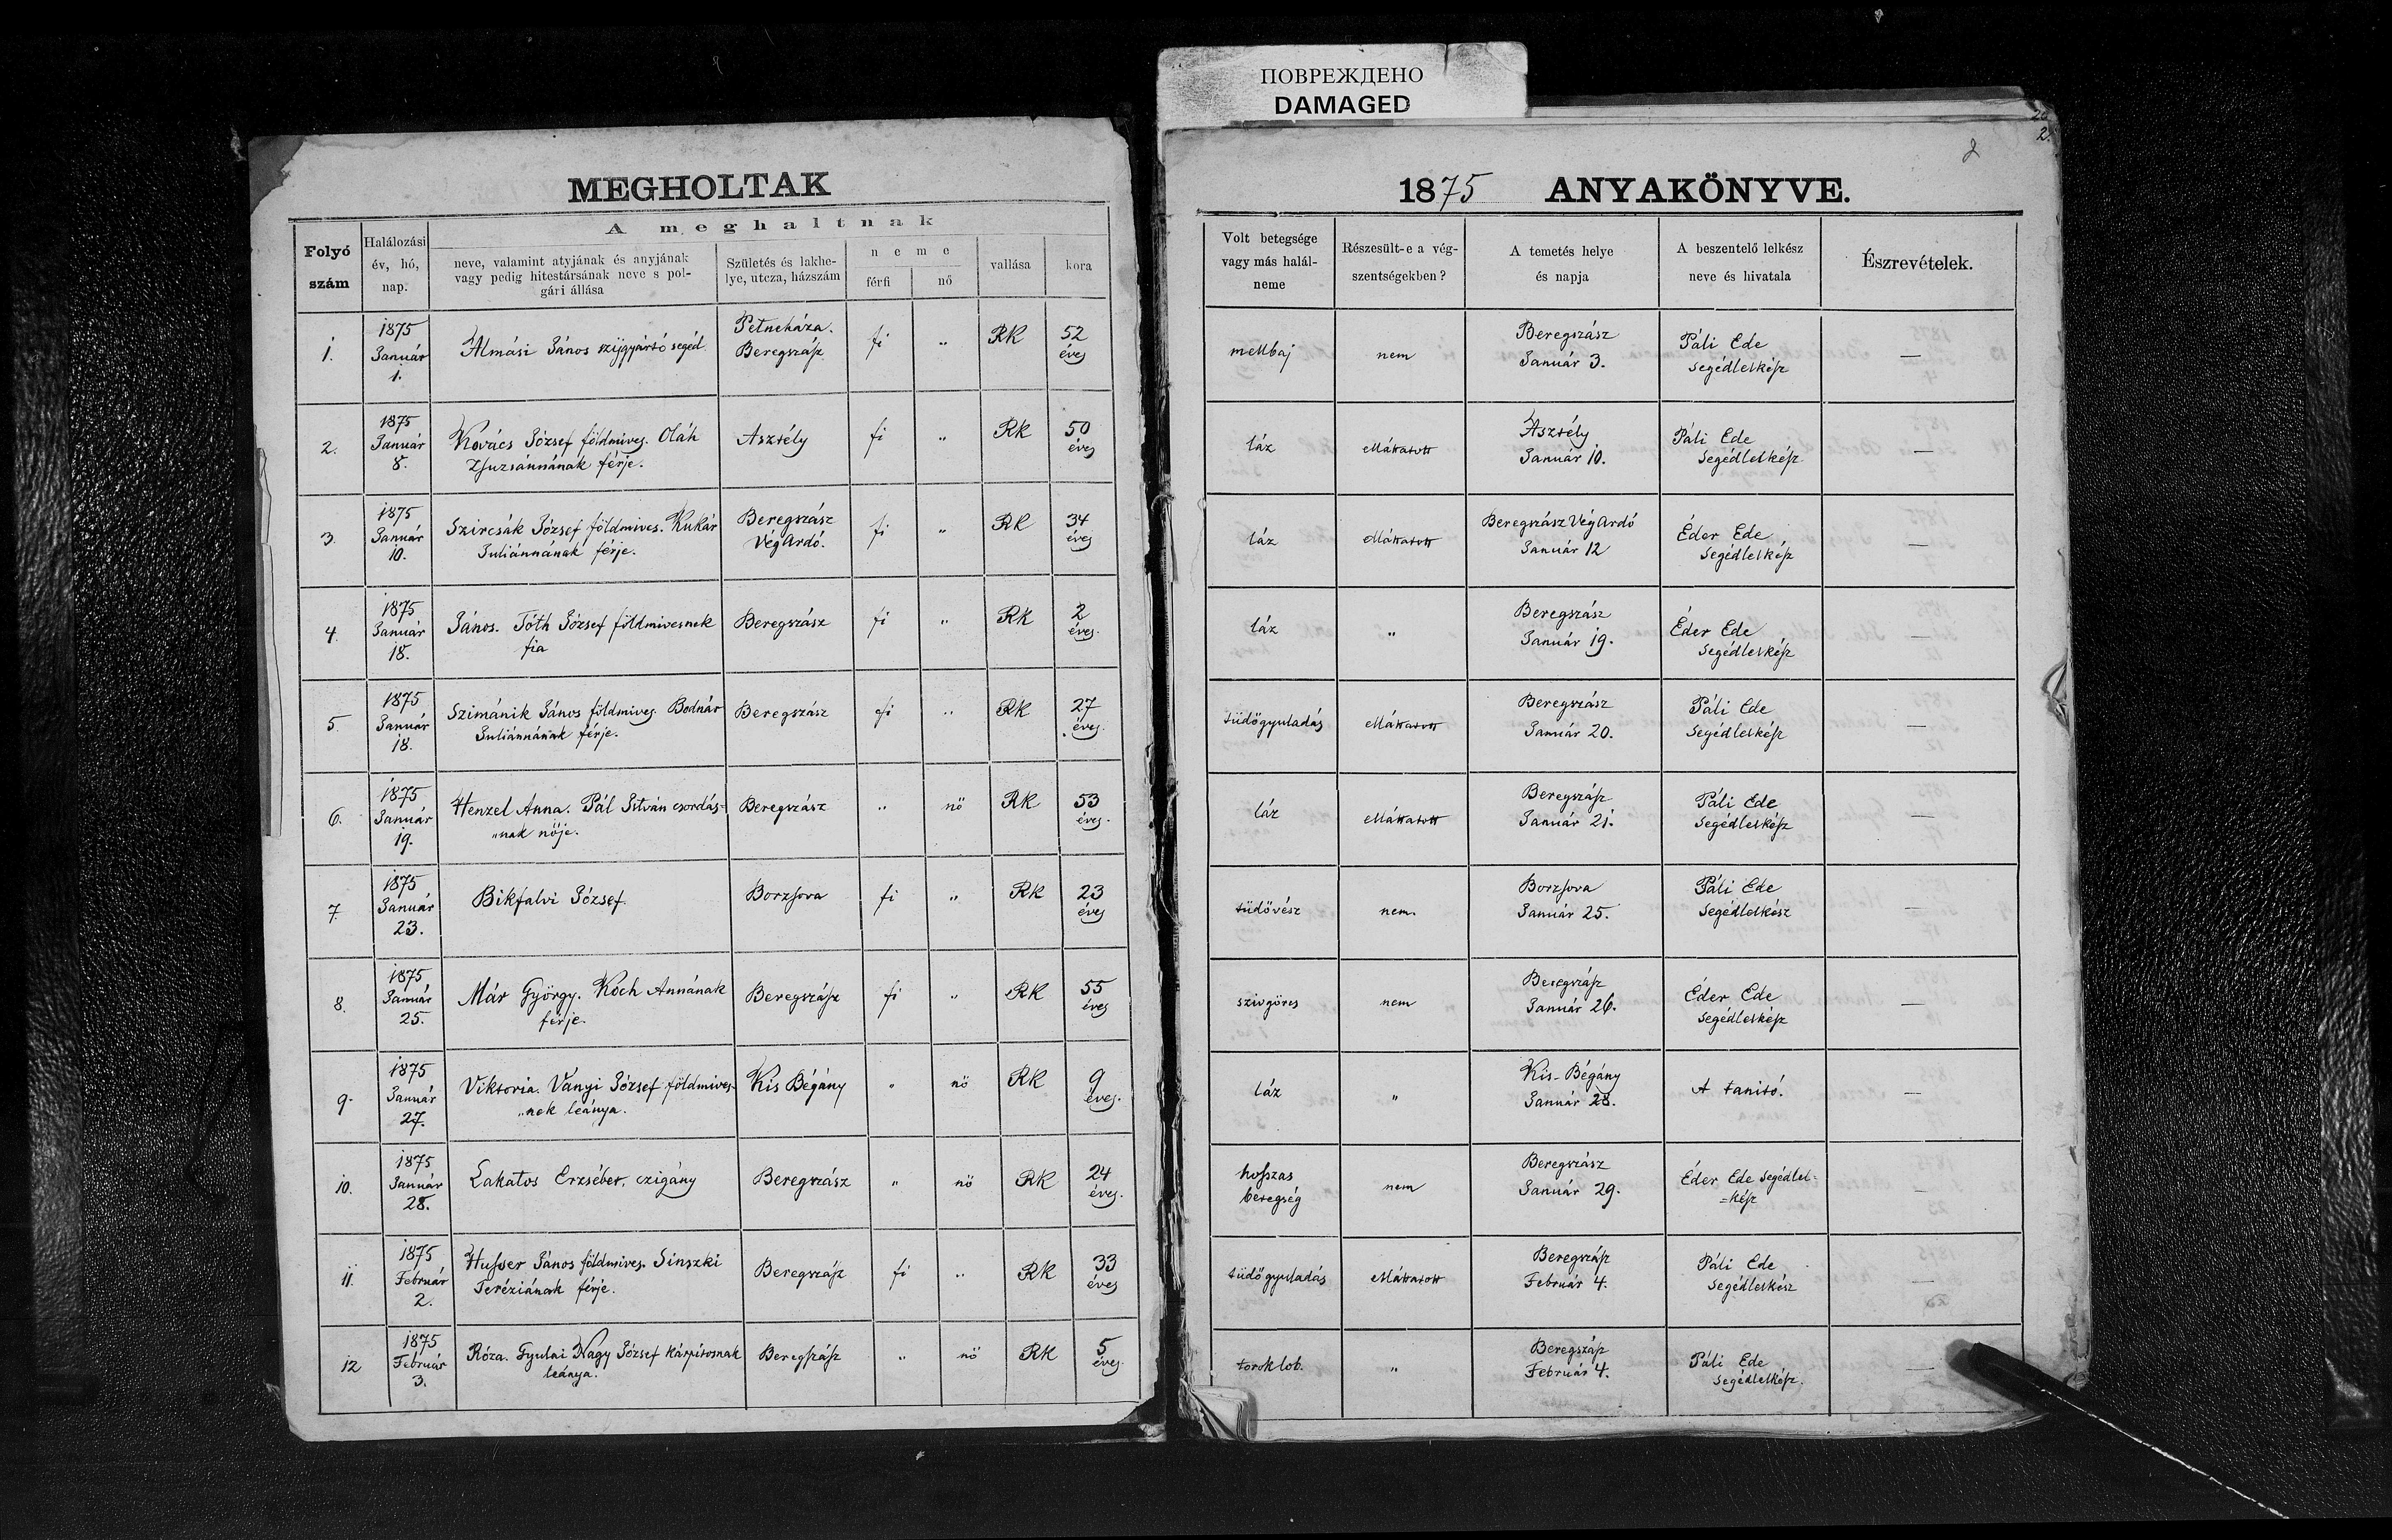 ПОВРЕЖДЕНО
DAMAGED
2
2.
MEGHOLTAK
1875 ANYAKÖNYVE.
A meghaltnak
Folyó szám
Halálozási év, hó, nap.
neve, valamint atyjának és anyjának
vagy pedig hitestársának neve s pol-
gári állása
Születés és lakhe-
lye, utcza, házszám
neme
férfi
nő
vallása
kora
Volt betegsége
vagy más halál-
neme
Részesült-e a vég-
szentségekben?
A temetés helye
és napja
A beszentelő lelkész
neve és hivatala
Észrevételek.
1.
1875
Január
1.
Almási János szijgyártó segéd.
Petneháza.
Beregszász
fi
"
RK
52
éves
mellbaj
nem
Beregszász
Január 3.
Páli Ede
segédlelkész
—
2.
1875
Január
8.
Kovács József földmives. Oláh
Zsuzsánnának férje.
Asztély
fi
"
RK
50
éves
láz
ellátatott
Asztély
Január 10.
Páli Ede
segédlelkész
—
3.
1875
Január
10.
Szircsák József földmives. Kukár
Juliánnának férje.
Beregszász
VégArdó.
fi
"
RK
34
éves
láz
ellátatott
Beregszász VégArdó
Január 12
Éder Ede
segédlelkész
—
4.
1875
Január
18.
János. Tóth József földmivesnek
fia
Beregszász
fi
"
RK
2
éves.
láz
"
Beregszász
Január 19.
Éder Ede
segédlelkész
—
5.
1875
Január
18.
Szimánik János földmives. Bodnár
Juliánnának férje.
Beregszász
fi
"
RK
27
éves.
tüdőgyuladás
ellátatott
Beregszász
Január 20.
Páli Ede
segédlelkész
—
6.
1875
Január
19.
Henzel Anna. Pál István csordás-
"nak nője.
Beregszász
"
nö
RK
53
éves.
láz
ellátatott
Beregszász
Január 21.
Páli Ede
segédlelkész
—
7.
1875
Január
23.
Bikfalvi József.
Borzsova
fi
"
RK
23
éves
tüdővész
nem.
Borzsova
Január 25.
Páli Ede
segédlelkész
—
8.
1875
Január
25.
Már György. Koch Annának
férje.
Beregszász
fi
"
RK
55
éves
szivgörcs
nem
Beregszász
Január 26.
Éder Ede
segédlelkész
—
9.
1875
Január
27.
Viktoria. Vanyi József földmives-
"nek leánya.
Kis Bégány
"
nö
RK
9
éves.
láz
"
Kis-Bégány
Január 28.
A tanitó.
—
10.
1875
Január
28.
Lakatos Erzsébet. czigány
Beregszász
"
nö
RK
24
éves.
hosszas
betegség
nem
Beregszász
Január 29.
Éder Ede segédlel-
=kész
—
11.
1875
Február
2.
Husser János földmives. Sinszki
Teréziának férje.
Beregszász
fi
"
RK
33
éves
tüdőgyuladás
ellátatott
Beregszász
Február 4.
Páli Ede
segédlelkész
—
12
1875
Február
3.
Róza. Gyulai Nagy József kárpitosnak
leánya.
Beregszász
"
nö
RK
5
éves.
toroklob.
"
Beregszász
Február 4.
Páli Ede
segédlelkész.
—